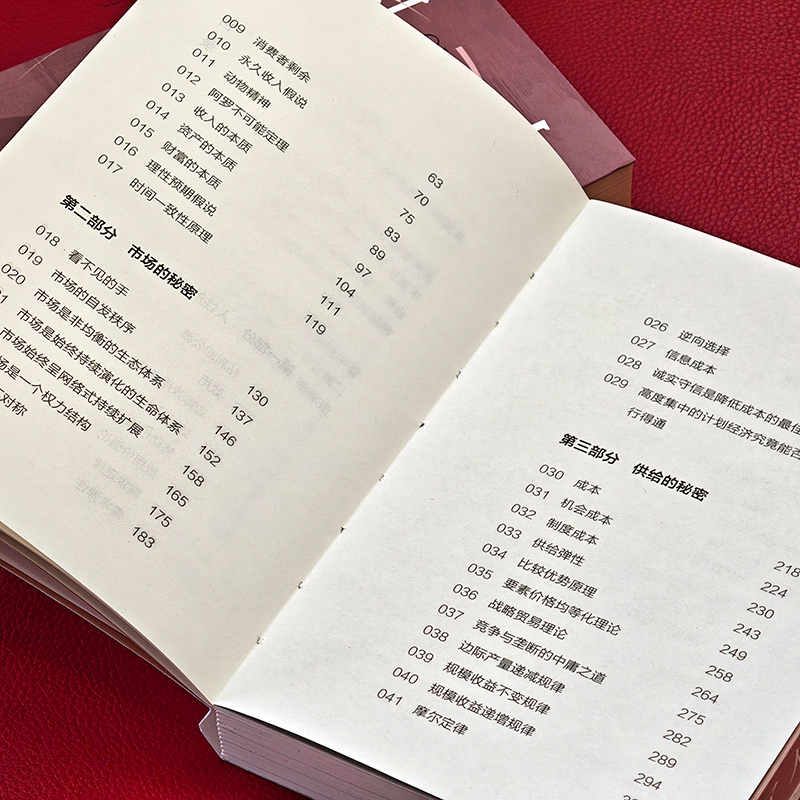 009 消费者剩余 63
010 永久收入假说 70
011 动物精神 75
012 阿罗不可能定理 83
013 收入的本质 89
014 资产的本质 97
015 财富的本质 104
016 理性预期假说 111
017 时间一致性原理 119
第二部分 市场的秘密
018 看不见的手 130
019 市场的自发秩序 137
020 市场是非均衡的生态体系 146
1 市场是始终持续演化的生命体系 152
市场始终呈网络式持续扩展 158
场是一个权力结构 165
对称 175
183
026 逆向选择
027 信息成本
028 诚实守信是降低成本的最佳
029 高度集中的计划经济究竟能否
行得通
第三部分 供给的秘密
030 成本 218
031 机会成本 224
032 制度成本 230
033 供给弹性 243
034 比较优势原理 249
035 要素价格均等化理论 258
036 战略贸易理论 264
037 竞争与垄断的中庸之道 275
038 边际产量递减规律 282
039 规模收益不变规律 289
040 规模收益递增规律 294
041 摩尔定律